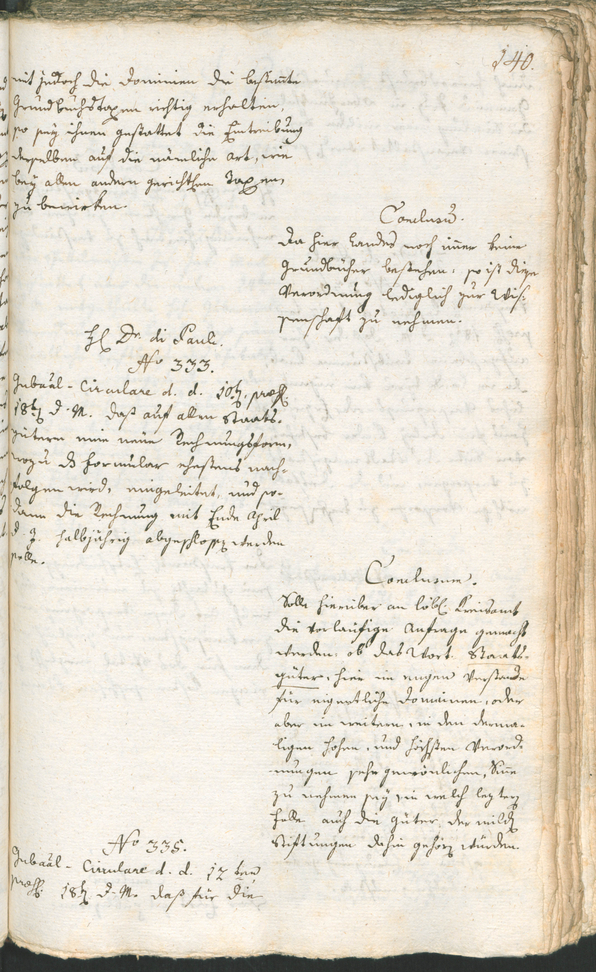 140.
mit jedoch die Dominien die bestimte
Grundbuchstaxen richtig erhalten,
so sey ihnen gestattet die Eintreibung
derselben auf die nämliche Art, wie
bey allen andern gerichthen Taxen,
zu bewirken.
Conclusū.
Da hier Landes noch imer keine
Grundbücher bestehen, so ist diese
Verordnung lediglich zur Wis-
senschaft zu nehmen.
H Dr. di Pauli.
No 333.
Gubaāl-Circulare d. d. 10t, præs.
18t d. M. daß auf allen Staats-
gütern eine neue Rechnungsform,
wozu ds Formular ehestens nach-
folgen wird, eingeleitet, und so-
dann die Rechnung mit Ende April
d. J. halbjährig abgeschloss werden
solle.
Conclusum.
Solle hierüber an löbl. Kreisamt
die vorläufige Anfrage gemacht
werden, ob das Wort Staats-
güter, hier in engen Verstande
für eigentliche Domainen, oder
aber in weitern, in den derma-
ligen hohen, und höchsten Verord-
nungen sehr gewönlichen, Sine
zu nehmen sey, in welch lezterz
Falle auch die Güter der mild
Stiftungen dahin gehörz würden.
No 335.
Gubaāl-Circulare d. d. 12ten,
præs. 18t d. M. daß für die